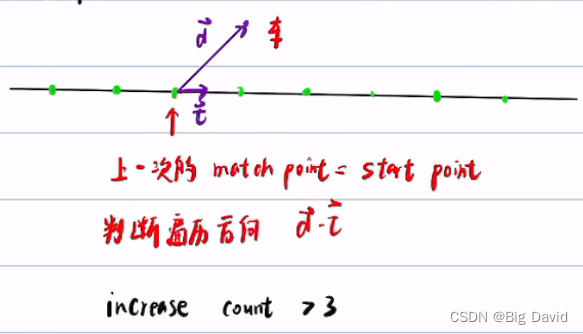 d 车
τ
上一次的 match point = start point
判断遍历方向 d·τ
increase count >3
CSDN @Big David